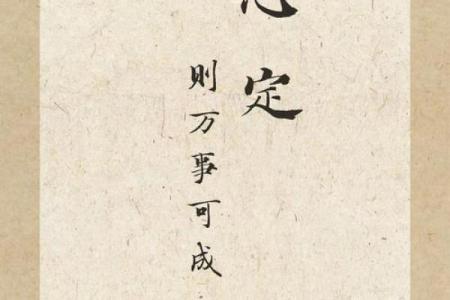 定
则万事可成